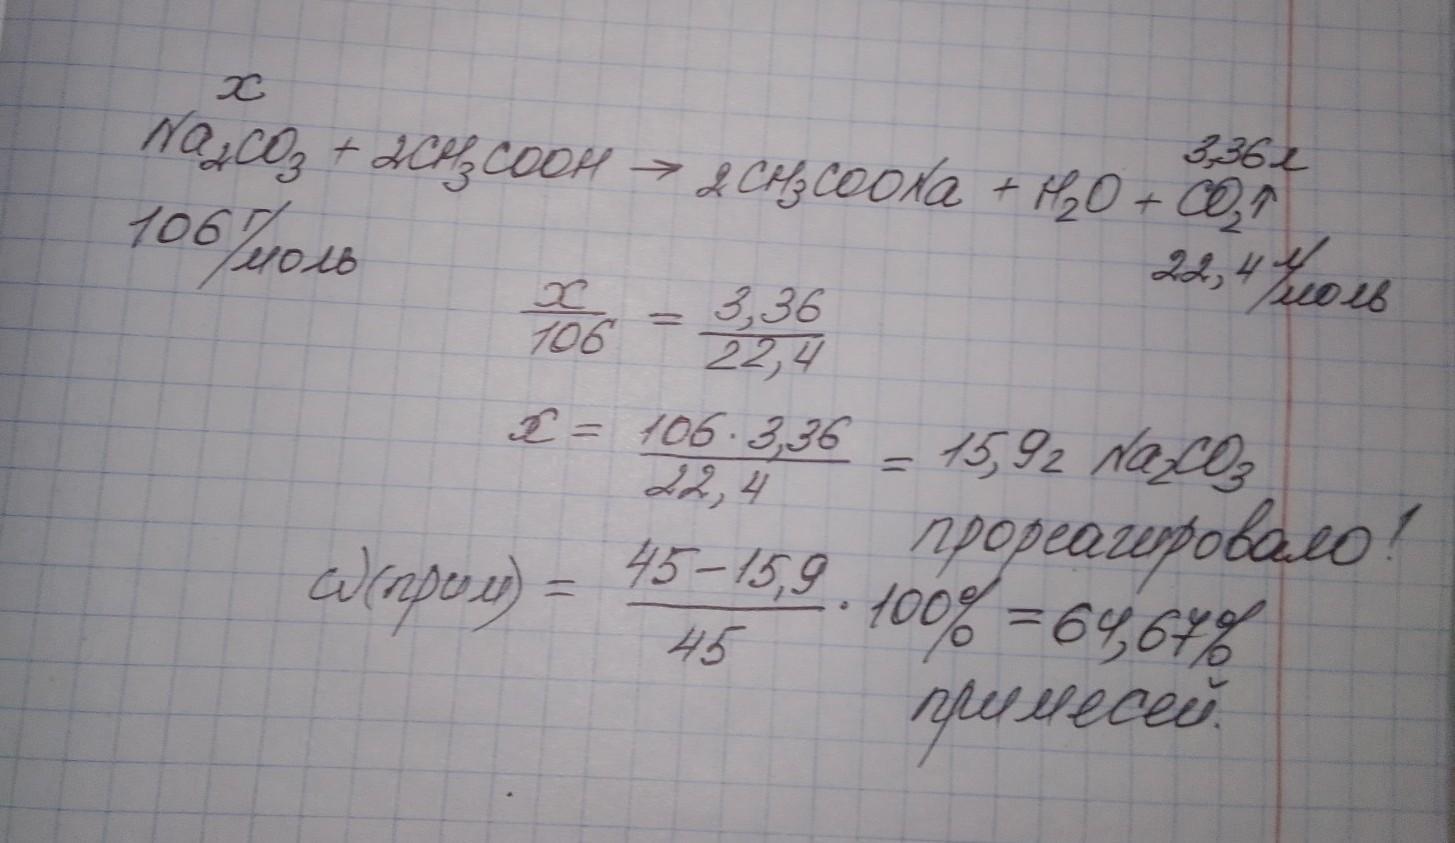 x
Na₂CO₃ + 2CH₃COOH → 2CH₃COONa + H₂O + CO₂↑
3,36л
106 г/моль
22,4 л/моль
x/106 = 3,36/22,4
x = 106 · 3,36/22,4 = 15,9г Na₂CO₃
прореагировало!
ω(прим) = 45-15,9/45 · 100% = 64,67%
примесей.